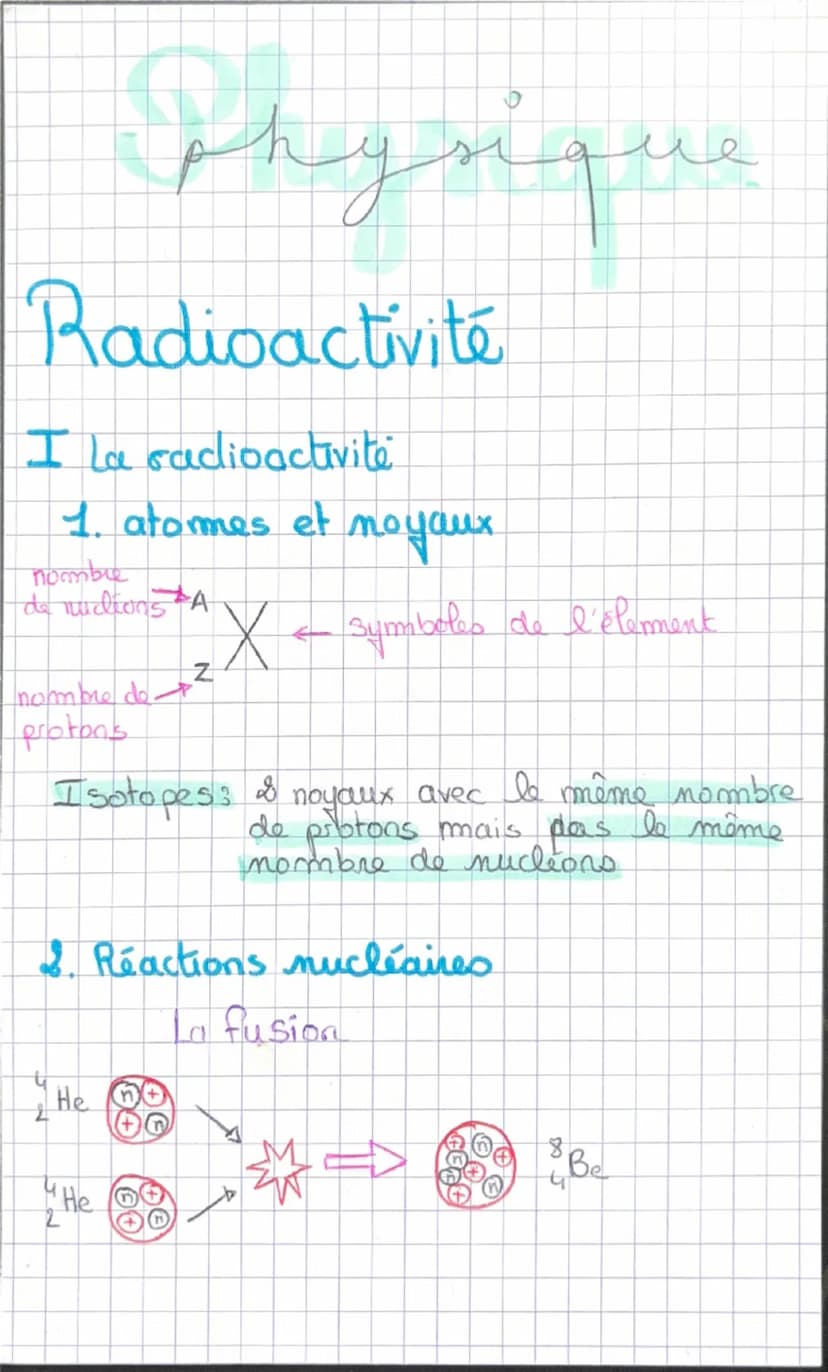 Physique
Radioactivité
I La radioactivité
1. atomes et noyaux
nombre
de nucléons → A
X ← symboles de l'élement
Z
nombre de →
protons
Isotopes : 2 noyaux avec le même nombre
de protons mais pas le même
nombre de nucléons
2. Réactions nucléaires
La fusion
4
2 He n + + n
4
2 He n + + n
+ n n + + n n +
8
4 Be